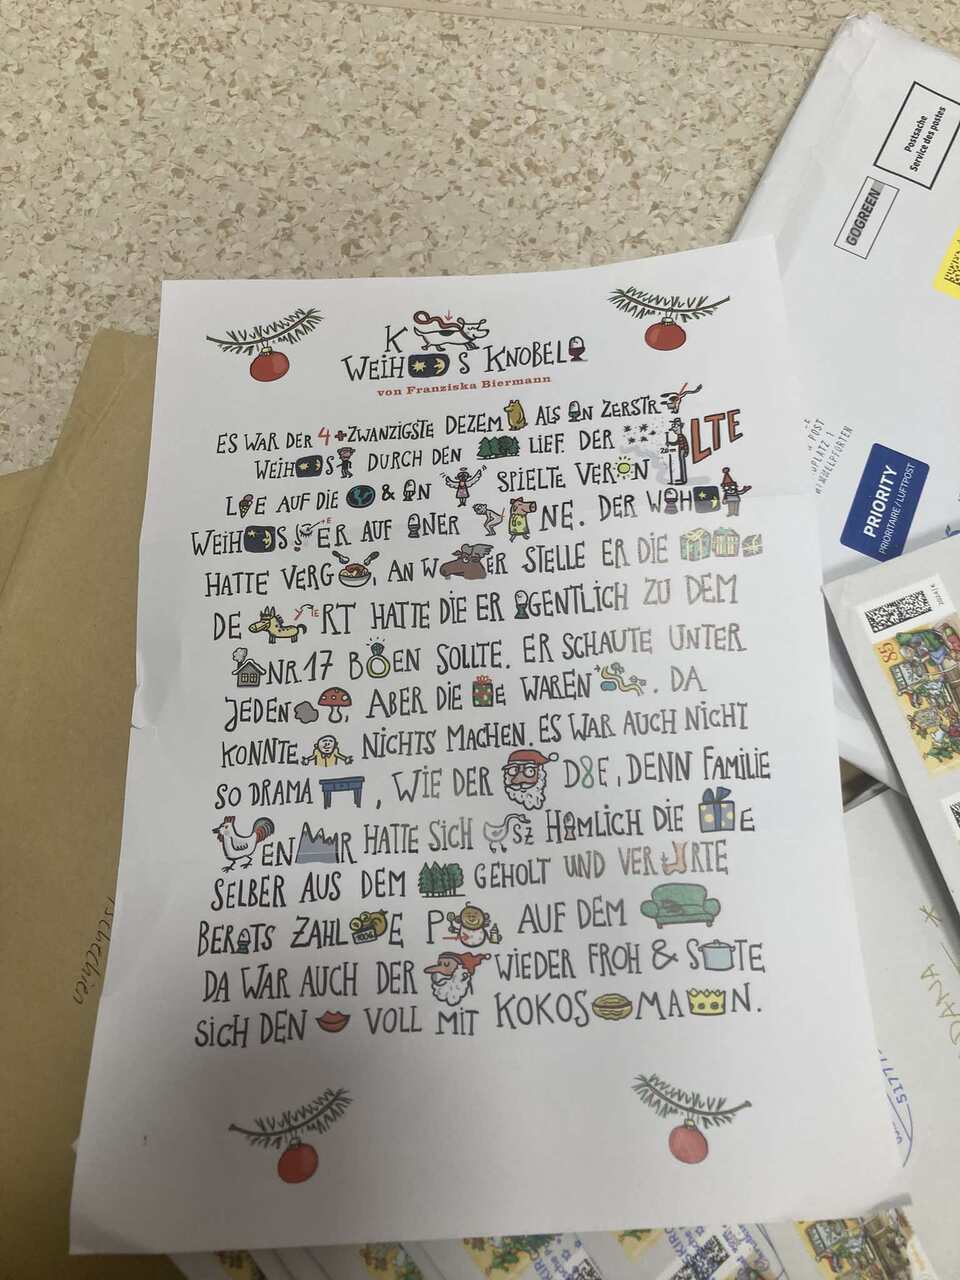 K
WEIH S KNOBEL
von Franziska Biermann
ES WAR DER 4 + ZWANZIGSTE DEZEM ALS N ZERSTR
WEIH S DURCH DEN LIEF. DER LTE
L E AUF DIE & N SPIELTE VER N
WEIH S ER AUF NER NE. DER W H
HATTE VERG , AN W ER STELLE ER DIE
DE RT HATTE DIE ER GENTLICH ZU DEM
NR. 17 B EN SOLLTE. ER SCHAUTE UNTER
JEDEN , ABER DIE E WAREN . DA
KONNTE NICHTS MACHEN. ES WAR AUCH NICHT
SO DRAMA , WIE DER D8E, DENN FAMILIE
EN R HATTE SICH SZ H MLICH DIE E
SELBER AUS DEM GEHOLT UND VER RTE
BER TS ZAHL E P AUF DEM
DA WAR AUCH DER WIEDER FROH & S TE
SICH DEN VOLL MIT KOKOS MA N.
Postsache
Service des postes
GOGREEN
PRIORITY
PRIORITAIRE / LUFTPOST
Tschechien
85
DANJA